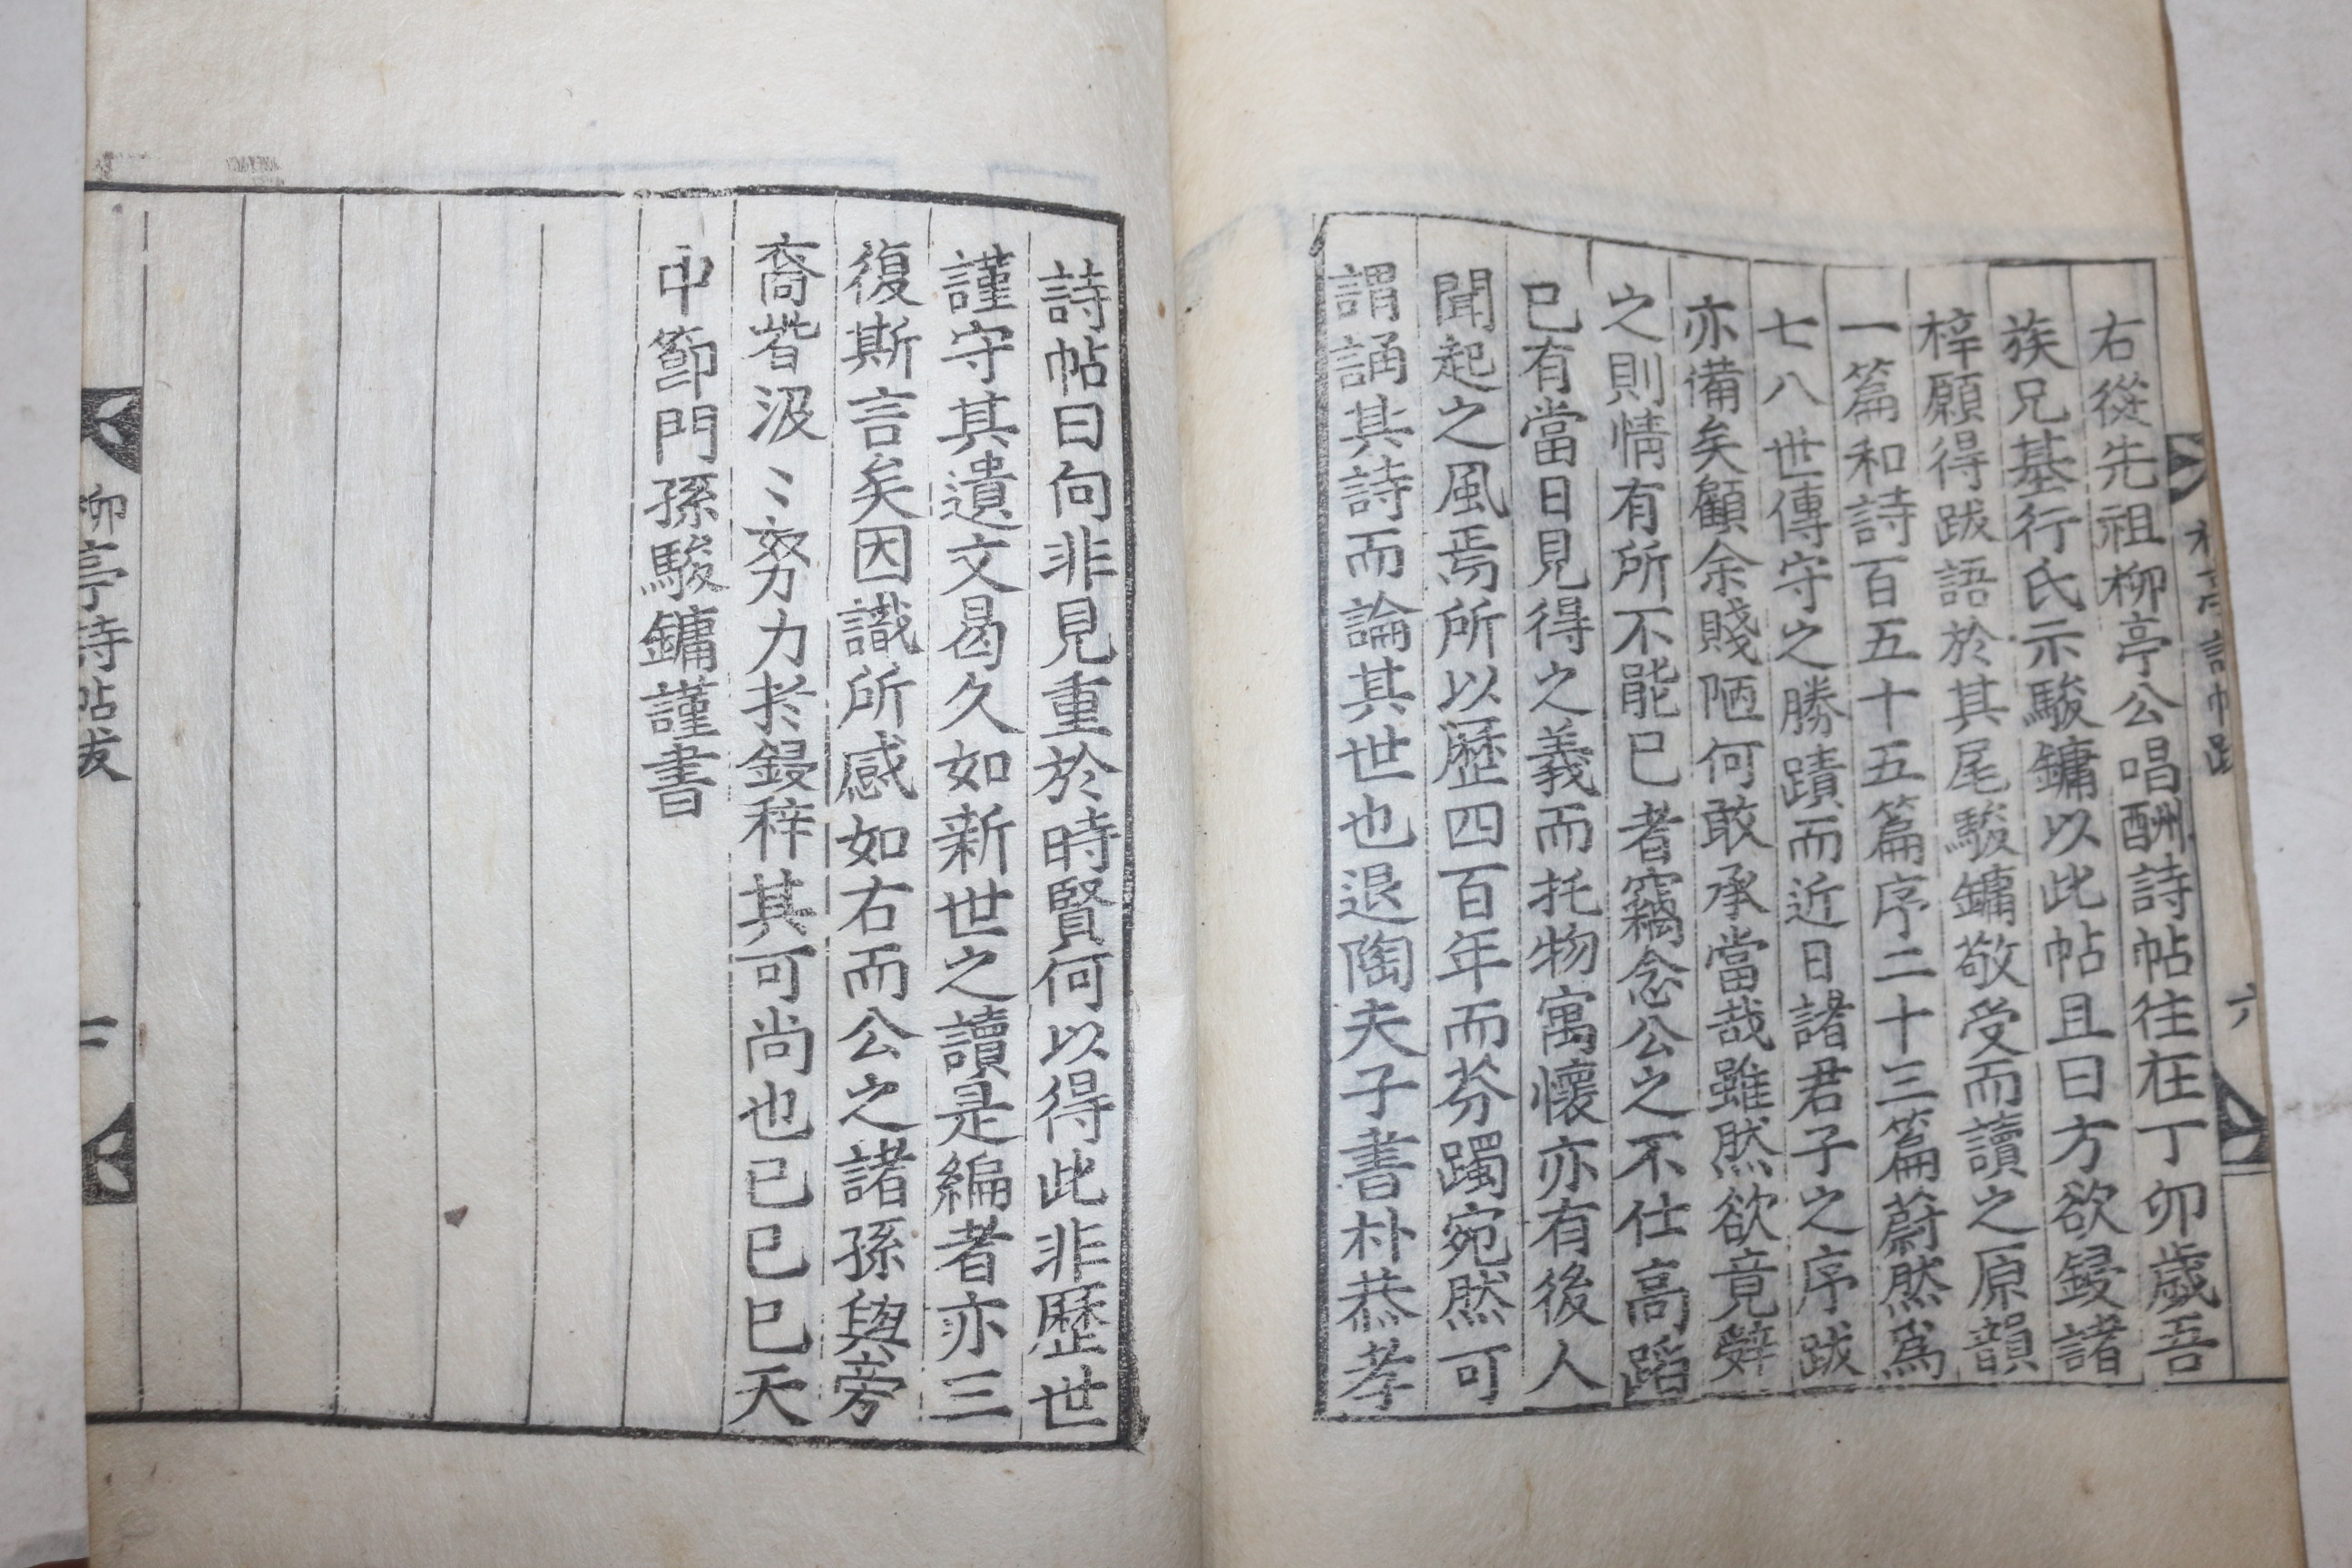 右從先祖柳亭公唱酬詩帖往在丁卯歲吾
族兄基行氏示駿鏞以此帖且曰方欲鋟諸
梓願得跋語於其尾駿鏞敬受而讀之原韻
一篇和詩百五十五篇序二十三篇蔚然爲
七八世傳守之勝蹟而近日諸君子之序跋
亦備矣顧余賤陋何敢承當哉雖然欲竟辭
之則情有所不能已者竊念公之不仕高蹈
已有當日見得之義而托物寓懷亦有後人
聞起之風焉所以歷四百年而芬躅宛然可
謂誦其詩而論其世也退陶夫子書朴恭孝
詩帖曰向非見重於時賢何以得此非歷世
謹守其遺文曷久如新世之讀是編者亦三
復斯言矣因識所感如右而公之諸孫與旁
裔皆汲〻努力於鋟梓其可尚也已己巳天
中節門孫駿鏞謹書
柳亭詩帖跋